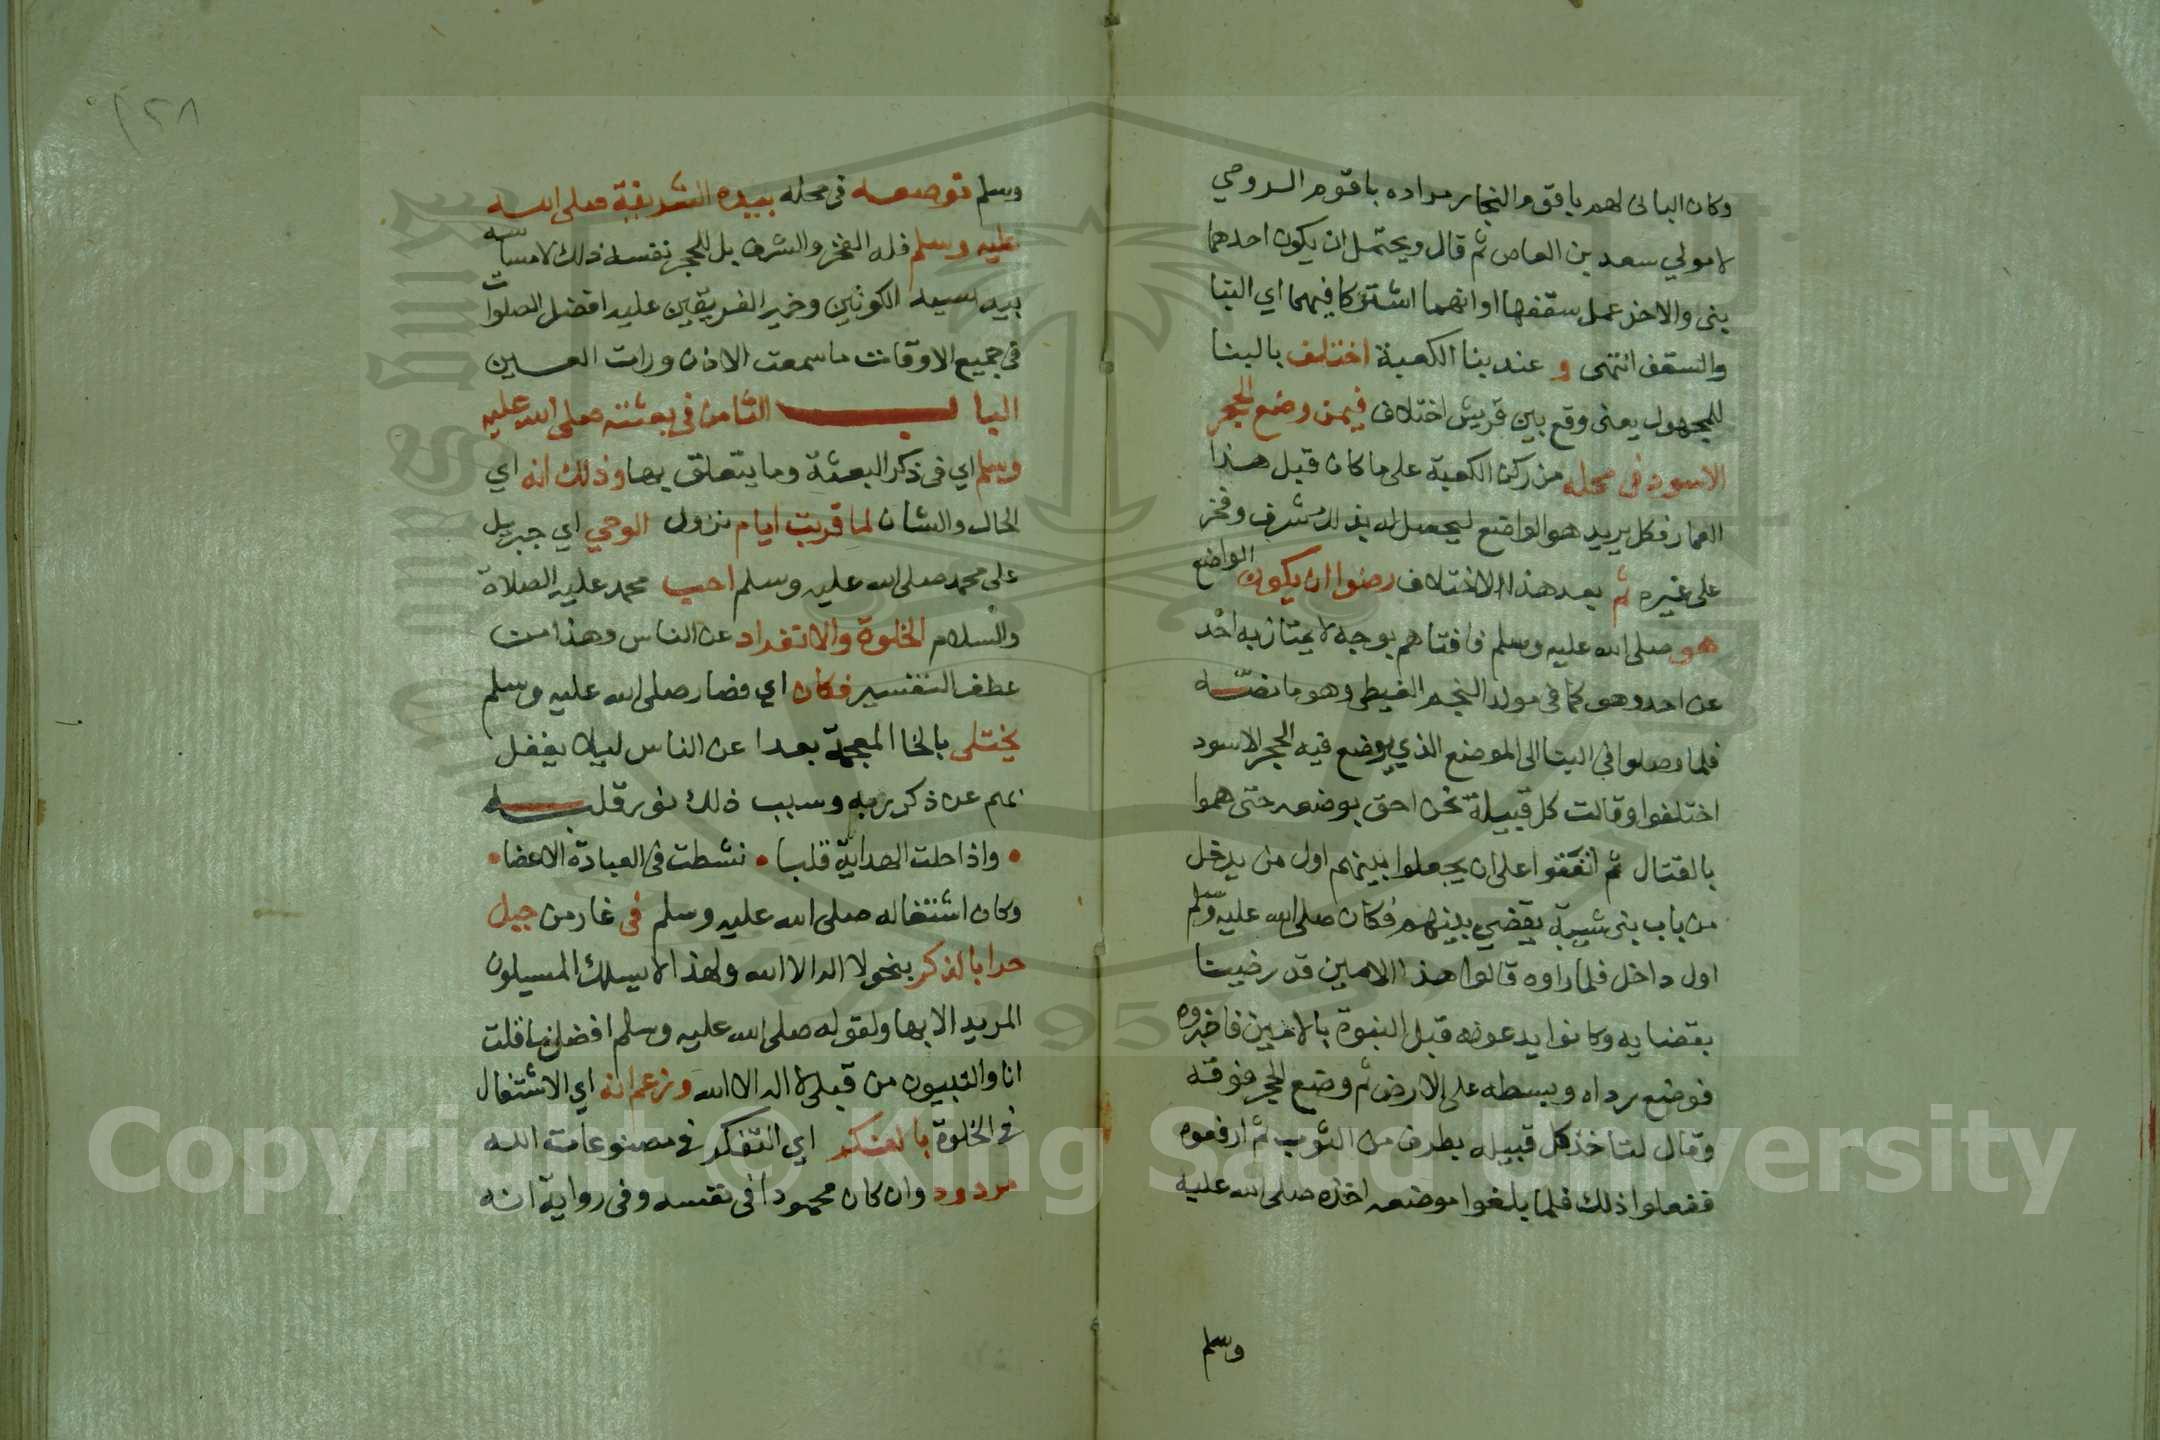 وكان البانى لهم باقوم النجار مراده باقوم الرومي
لا مولي سعد بن العاص ثم قال ويحتمل ان يكون احدهما
بنى والاخر عمل سقفها او انهما اشتركا فيهما اي البنا
والسقف انتهى و عند بنا الكعبة اختلف بالبنا
للمجهول يعنى وقع بين قريش اختلاف فيمن وضع الحجر
الاسود فى محله من ركن الكعبة على ما كان قبل هذا
العمار فكل يريد هو الواضع ليحصل له بذلك شرف وفخر
على غيره ثم بعد هذا الاختلاف رضوا ان يكون الواضع
هو صلى الله عليه وسلم فافتاهم بوجه لا يمتاز به احد
عن احد وهو كما فى مولد النجم الغيطى وهو ما نصه
فلما وصلوا فى البنا الى الموضع الذي يوضع فيه الحجر الاسود
اختلفوا وقالت كل قبيلة نحن احق بوضعه حتى هموا
بالقتال ثم اتفقوا على ان يجعلوا بينهم اول من يدخل
من باب بنى شيبة يقضي بينهم فكان صلى الله عليه وسلم
اول داخل فلما راوه قالوا هذا الامين قد رضينا
بقضايه وكانوا يدعونه قبل النبوة بالامين فاخبروه
فوضع رداه وبسطه على الارض ثم وضع الحجر فوقه
وقال لتاخذ كل قبيله بطرف من الثوب ثم ارفعوه
ففعلوا ذلك فلما بلغوا موضعه اخذه صلى الله عليه
وسلم
٢٨
وسلم فوضعه فى محله بيده الشريفة صلى الله
عليه وسلم فله الفخر والشرف بل للحجر نفسه ذلك لامساسه
بيد سيد الكونين وخير الفريقين عليه افضل الصلوات
فى جميع الاوقات ما سمعت الاذن ورات العين
الباب الثامن فى بعثته صلى الله عليه
وسلم اي فى ذكر البعثة وما يتعلق بها وذلك انه اي
الحال والشان لما قربت ايام نزول الوحي اي جبريل
على محمد صلى الله عليه وسلم احب محمد عليه الصلاة
والسلام الخلوة والانفراد عن الناس وهذا من
عطف التفسير فكان اي فصار صلى الله عليه وسلم
يختلى بالخا المعجمة بعدا عن الناس ليلا يغفل
بهم عن ذكر ربه وسبب ذلك نور قلبه
واذا حلت الهداية قلبا نشطت فى العبادة الاعضا
وكان اشتغاله صلى الله عليه وسلم فى غار من جبل
حرا بالذكر بنحو لا اله الا الله ولهذا لا يسلك المسلون
المريد الا بها ولقوله صلى الله عليه وسلم افضل ما قلت
انا والنبيون من قبلى لا اله الا الله وزعم انه اي الاشتغال
فى الخلوة بالفكر اي التفكر فى مصنوعات الله
مردود وان كان محمودا فى نفسه وفى رواية انه
Copyright © King Saud University